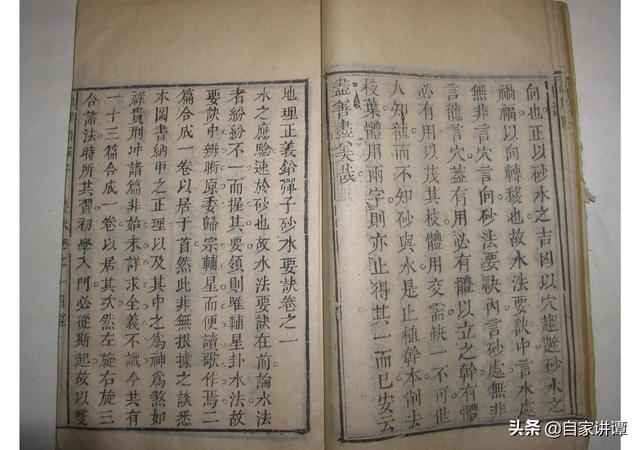 向也正以砂水之吉凶以穴趨避砂水之
禍福以向轉移也故水法要訣中言水處
無非言穴言向砂法要訣內言砂處無非
言龍言穴蓋有用必有體以立之幹有體
必有用以茂其枝體用交需缺一不可世
人知龍而不知砂與水是止植幹本倒去
枝葉體用兩字則亦止得其一而已安云
盡善盡美哉
地理正義鉛彈子砂水要訣卷之一
水之應驗速於砂也故水法要訣在前論水法
者紛紛不一而握其要領則唯輔星卦水法故
要訣中辨晰原委歸宗輔星而便讀歌作焉二
篇合成一卷以居于首然此非無根據之談悉
本圖書納甲之正理以及其中之為神為煞如
祿貴刑冲諸篇非始末詳求全義不識今共有
一十三篇合成一卷以居其次然左旋右旋三
合諸法時所共習初學入門必從斯起故以雙
头条 @自家讲谭